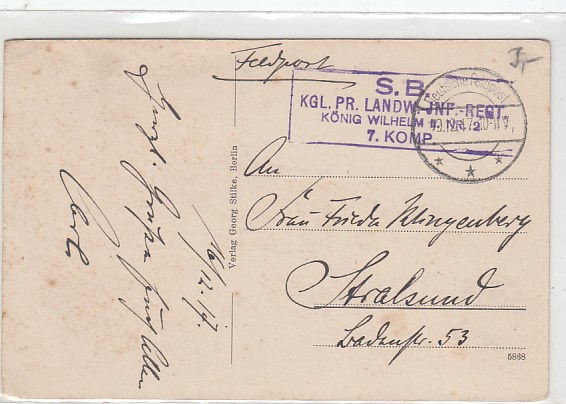 Feldpost
S.B.
KGL. PR. LANDW.-INF.-REGT.
KÖNIG WILHELM II. NR. 2
7. KOMP.
Deutsche Feldpost
An
Frau Frieda Klingenberg
Stralsund
Badenstr. 53
16/12. 17.
Herzl. Grüße
Carl
Verlag Georg Stilke, Berlin
5868